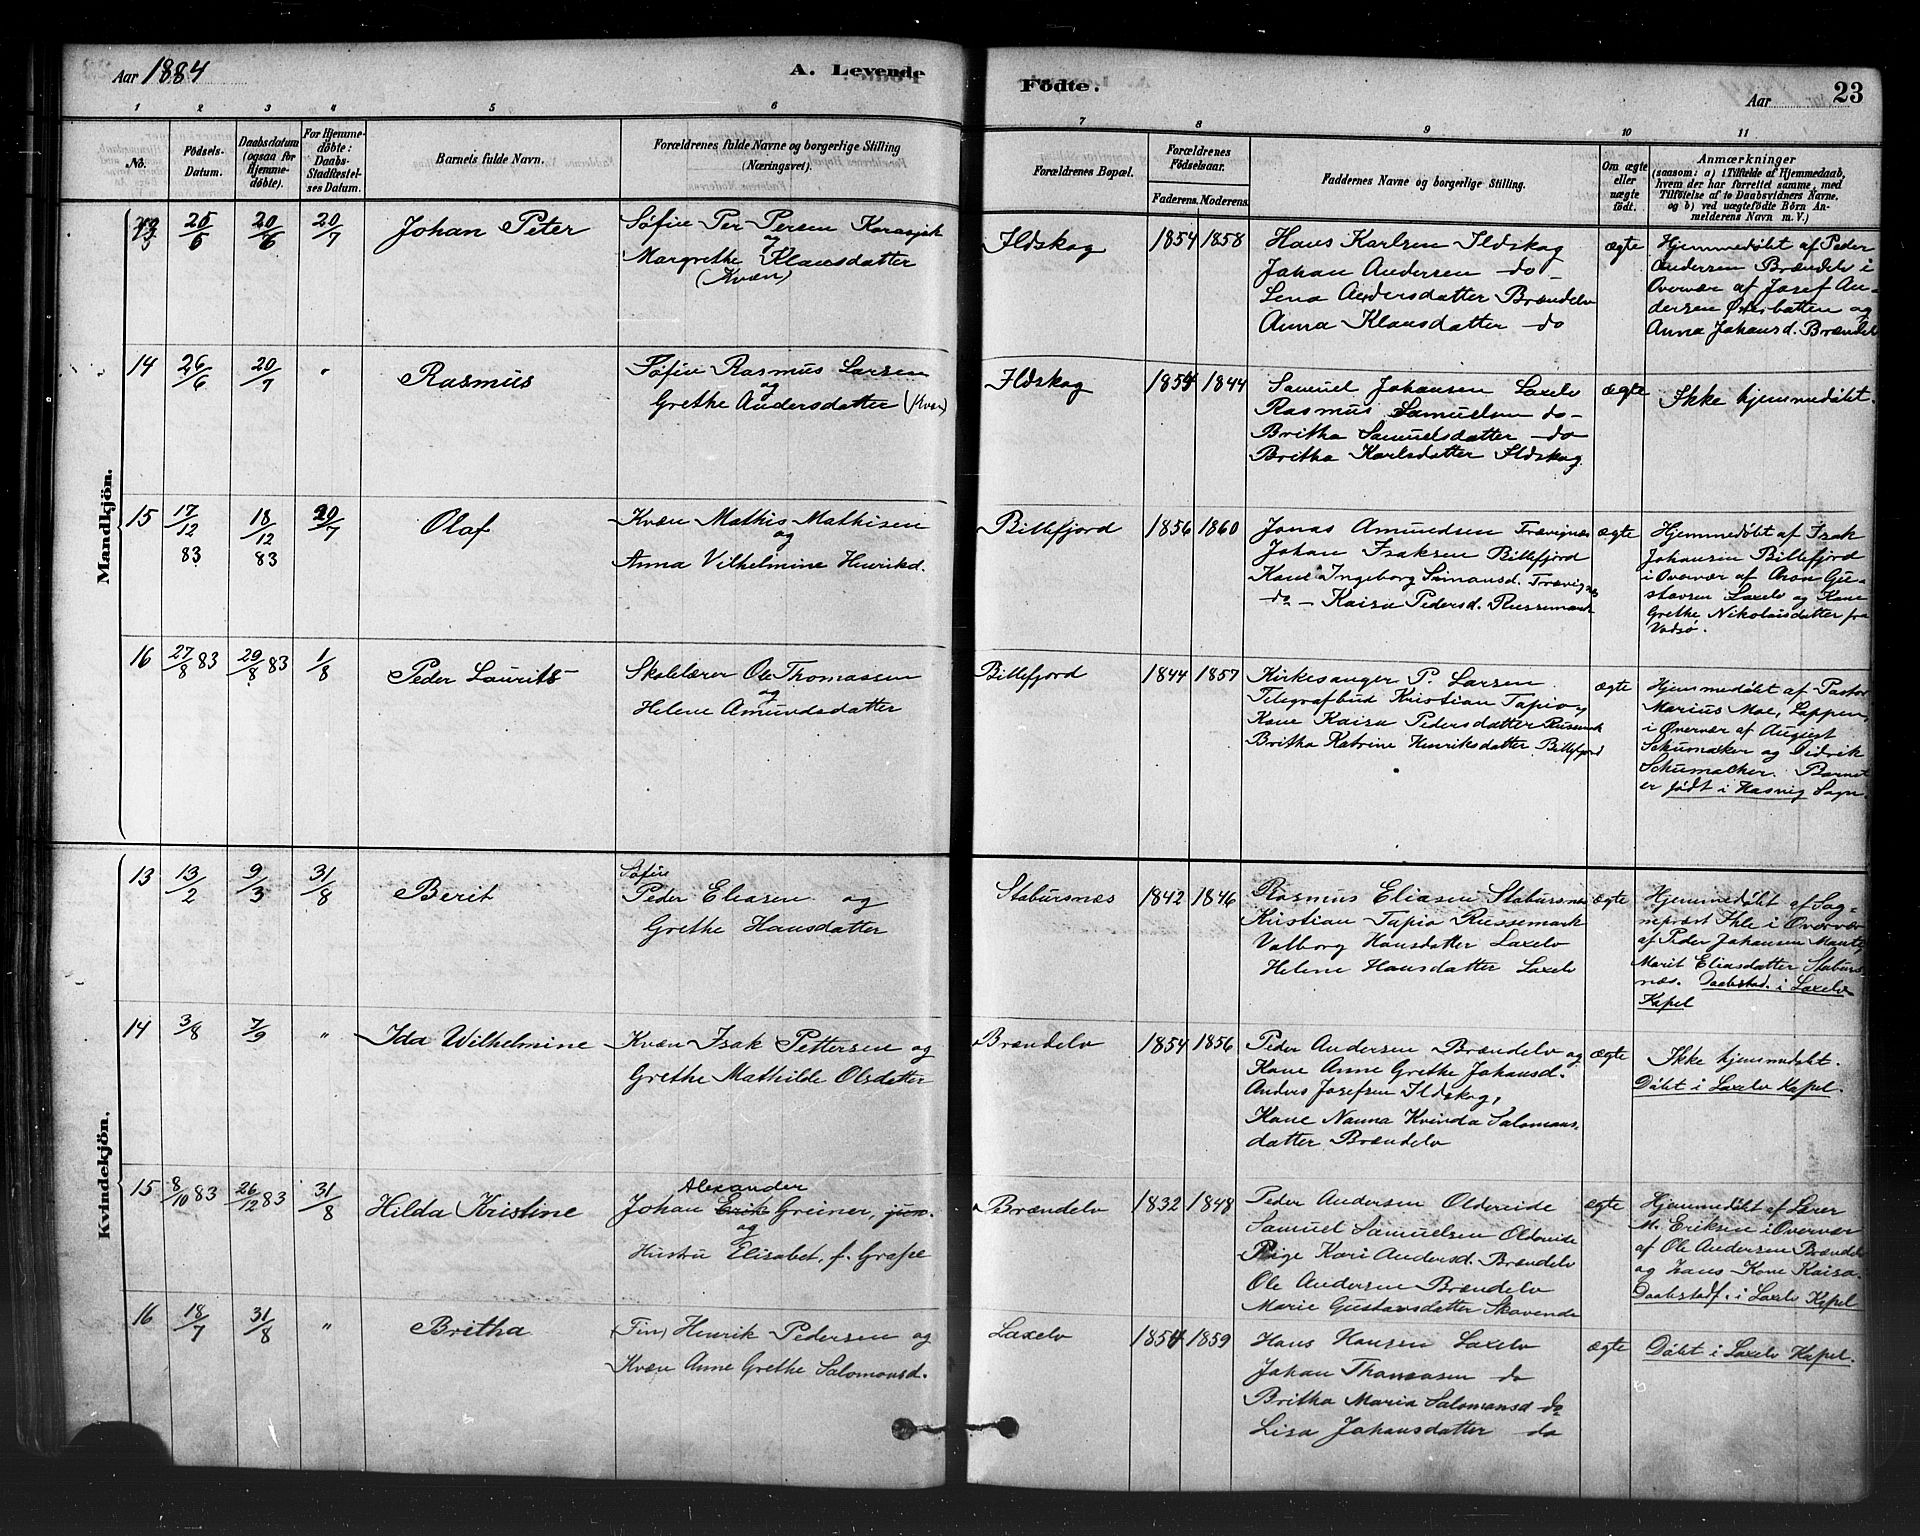 Aar 1884
A. Levende
Fødte.
Aar
23
1 2 3 4 5 6 7 8 9 10 11
No.
Fødsels-
Datum.
Daabsdatum
(ogsaa for
Hjemme-
døbte).
For Hjemme-
døbte:
Daabs-
Stadfæstel-
ses Datum.
Barnets fulde Navn.
Forældrenes fulde Navne og borgerlige Stilling
(Næringsvei).
Forældrenes Bopæl.
Forældrenes
Fødselsaar.
Faderens. Moderens.
Faddernes Navne og borgerlige Stilling.
Om ægte
eller
uægte
født.
Anmærkninger
(saasom: a) i Tilfælde af Hjemmedaab,
hvem der har forrettet samme, med
Tilføielse af to Daabsvidners Navne,
og b) ved uægtefødte Børn An-
melderens Navn m. V.)
Mandkjön.
13
25/5
20/6
20/7
Johan Peter
Søfin Per Persen Karasjok
og
Margrethe Klausdatter
(Kvæn)
Ildskog
1854 1858
Hans Karlsen Ildskog
Johan Andersen do
Lena Andersdatter Brændelv
Anna Klausdatter do
ægte
Hjemmedøbt af Peder
Andersen Brændelv i
Overvær af Josef An-
dersen Østerbotten og
Anna Johansd. Brændelv
14
26/6
20/7
"
Rasmus
Søfin Rasmus Larsen
og
Grethe Andersdatter (Kvæn)
Ildskog
1854 1844
Samuel Johansen Laxelv
Rasmus Samuelsen do
Britha Samuelsdatter do
Britha Karlsdatter Ildskog
ægte
Ikke hjemmedøbt.
15
17/12
83
18/12
83
20/7
Olaf
Kvæn Mathis Mathisen
og
Anna Vilhelmine Henriksd.
Billefjord
1856 1860
Jonas Amundsen Trævignæs
Johan Isaksen Billefjord
Kone Ingeborg Simonsd. Trævignæs
do Kaisa Pedersd. Russemark
ægte
Hjemmedøbt af Isak
Johansen Billefjord
i Overvær af Aron Gu-
stavsen Laxelv og Kone
Grethe Nikolaisdatter fra
Vadsø.
16
27/8 83
29/8 83
1/8
Peder Laurits
Skolelærer Ole Thomassen
og
Helene Amundsdatter
Billefjord
1844 1857
Kirkesanger P. Larsen
Telegrafbud Kristian Tapio,
Kone Kaisa Pedersdatter Russemk
Britha Katrine Henriksdatter Billefjord
ægte
Hjemmedøbt af Pastor
Marius Moe, Loppen,
i Overvær af August
Schumacker og Didrik
Schumacker. Barnet
er født i Hasvig Sogn.
Kvindekjön.
13
13/2
9/3
31/8
Berit
Søfin
Peder Eliasen og
Grethe Hansdatter
Stabursnæs
1842 1846
Rasmus Eliasen Stabursnæs
Kristian Tapio Russemark
Valborg Hansdatter Laxelv
Helene Hansdatter Laxelv
ægte
Hjemmedøbt af Sog-
neprest Ihle i Overvær
af Peder Johansen
Marit Eliasdatter Staburs-
næs. Daabstad. i Laxelv
Kapel
14
3/8
7/9
"
Ida Wilhelmine
Kvæn Isak Pettersen og
Grethe Mathilde Olsdatter
Brændelv
1854 1856
Peder Andersen Brændelv og
Kone Anne Grethe Johansd.
Anders Josefsen Ildskog,
Kone Nanna Kvinda Salomons-
datter Brændelv
ægte
Ikke hjemmedøbt.
Døbt i Laxelv Kapel.
15
8/10 83
26/12 83
31/8
Hilda Kristine
Alexander
Johan Erik Greiner, jun.
og
Hustru Elisabet, f. Grape
Brændelv
1832 1848
Peder Andersen Oldereide
Samuel Samuelsen Oldereide
Pige Kari Andersd. Brændelv
Ole Andersen Brændelv
Marie Gustavsdatter Skavende
ægte
Hjemmedøbt af Lærer
M. Eriksen i Overvær
af Ole Andersen Brændelv
og hans Kone Kaisa.
Daabstadf. i Laxelv Kapel
16
18/7
31/8
"
Britha
(Fin) Henrik Pedersen og
Kvæn Anne Grethe Salomonsd.
Laxelv
1854 1859
Hans Hansen Laxelv
Johan Thomasen do
Britha Maria Salomonsd do
Lisa Johansdatter do
ægte
Døbt i Laxelv Kapel.